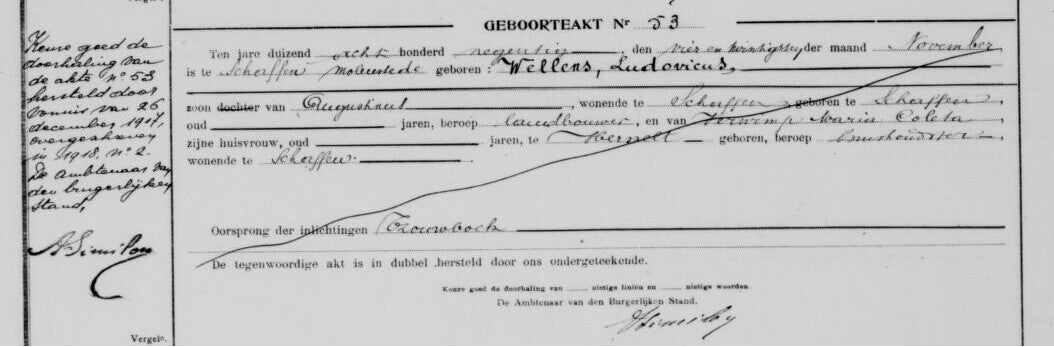 Vergele
GEBOORTEAKT Nr 53
Keure goed de
doorhaling van
de akte no 53
hersteld door
vonnis van 26
december 1917,
overgeschreven
in 1918. no 2.
De Ambtenaar van
den burgerlijken
Stand,
Ten jare duizend acht honderd negentig, den vier en twintigsten der maand November
is te Schaffen Molenstede geboren : Wellens, Ludovicus,
zoon dochter van Augustinus, wonende te Schaffen geboren te Schaffen,
oud jaren, beroep landbouwer, en van Verwimp Maria Coleta,
zijne huisvrouw, oud jaren, te geboren, beroep
wonende te Schaffen.
Oorsprong der inlichtingen Trouwboek
De tegenwoordige akt is in dubbel hersteld door ons ondergeteekende.
Keure goed de doorhaling van nietige linien en nietige woorden.
De Ambtenaar van den Burgerlijken Stand.
Vergele.